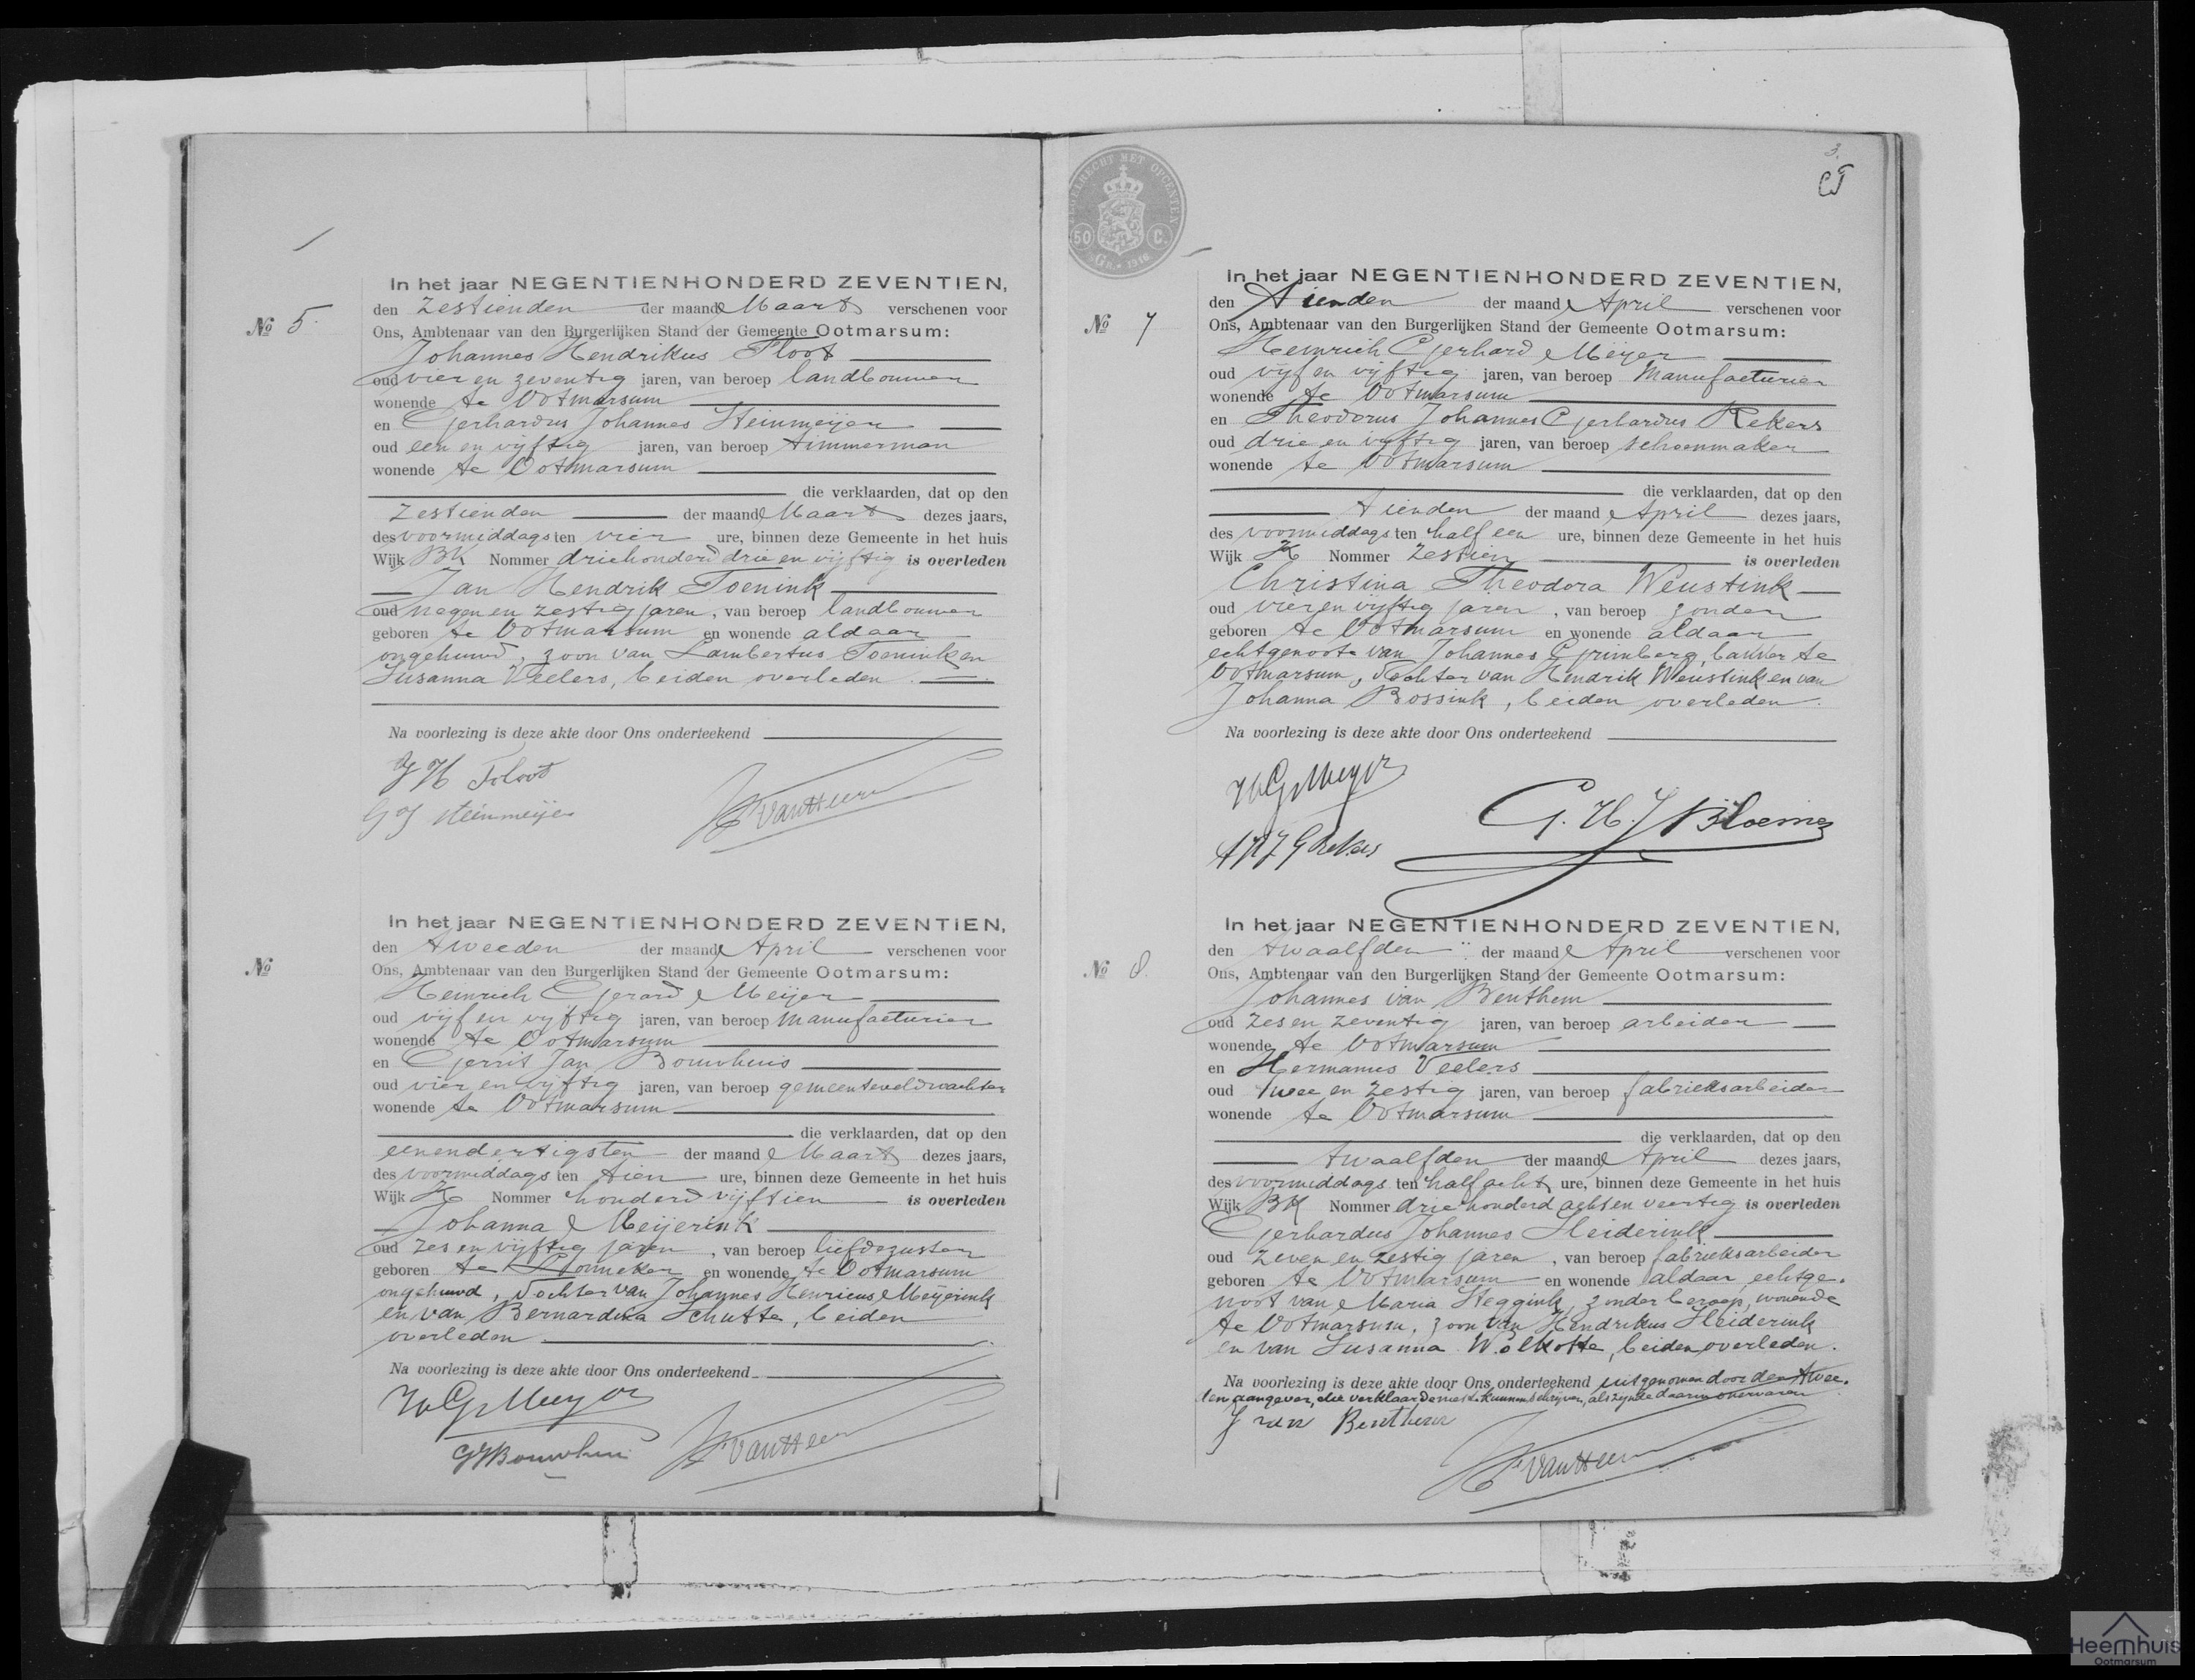 In het jaar NEGENTIENHONDERD ZEVENTIEN,
den zestienden der maand Maart verschenen voor
No 5.
Ons, Ambtenaar van den Burgerlijken Stand der Gemeente Ootmarsum:
Johannes Hendrikus Floot
oud vier en zeventig jaren, van beroep landbouwer
wonende te Ootmarsum
en Gerhardus Johannes Steinmeijer
oud een en vijftig jaren, van beroep timmerman
wonende te Ootmarsum
die verklaarden, dat op den
zestienden der maand Maart dezes jaars,
des voormiddags ten vier ure, binnen deze Gemeente in het huis
Wijk BK Nommer driehonderd drie en vijftig is overleden
Jan Hendrik Toenink
oud negen en zestig jaren, van beroep landbouwer
geboren te Ootmarsum en wonende aldaar
ongehuwd, zoon van Lambertus Toenink en
Susanna Veelers, beiden overleden.
Na voorlezing is deze akte door Ons onderteekend
J H Floot
G J Steinmeijer
van Heern
In het jaar NEGENTIENHONDERD ZEVENTIEN,
den tweeden der maand April verschenen voor
No
Ons, Ambtenaar van den Burgerlijken Stand der Gemeente Ootmarsum:
Heinrich Gerard Meijer
oud vijf en vijftig jaren, van beroep manufacturier
wonende te Ootmarsum
en Gerrit Jan Bouwhuis
oud vier en vijftig jaren, van beroep gemeenteveldwachter
wonende te Ootmarsum
die verklaarden, dat op den
eenendertigsten der maand Maart dezes jaars,
des voormiddags ten tien ure, binnen deze Gemeente in het huis
Wijk K Nommer honderd vijftien is overleden
Johanna Meijerink
oud zes en vijftig jaren, van beroep liefdezuster
geboren te Lonneker en wonende te Ootmarsum
ongehuwd, dochter van Johannes Henricus Meijerink
en van Bernardina Schutte, beiden
overleden.
Na voorlezing is deze akte door Ons onderteekend
H G Meyer
GJBouwhuis
van Heern
3.
ZEGELRECHT MET OPCENTEN
50 C.
In het jaar NEGENTIENHONDERD ZEVENTIEN,
den tienden der maand April verschenen voor
No 7
Ons, Ambtenaar van den Burgerlijken Stand der Gemeente Ootmarsum:
Heinrich Gerhard Meijer
oud vijf en vijftig jaren, van beroep Manufacturier
wonende te Ootmarsum
en Theodorus Johannes Gerhardus Rekers
oud drie en vijftig jaren, van beroep schoenmaker
wonende te Ootmarsum
die verklaarden, dat op den
tienden der maand April dezes jaars,
des voormiddags ten half een ure, binnen deze Gemeente in het huis
Wijk K Nommer zestien is overleden
Christina Theodora Weustink
oud vier en vijftig jaren, van beroep zonder
geboren te Ootmarsum en wonende aldaar
echtgenoote van Johannes Grimberg, bakker te
Ootmarsum, dochter van Hendrik Weustink en van
Johanna Bossink, beiden overleden.
Na voorlezing is deze akte door Ons onderteekend
H G Meyer
G. H. J Bloemen
Th J G Rekers
In het jaar NEGENTIENHONDERD ZEVENTIEN,
den twaalfden der maand April verschenen voor
No 8.
Ons, Ambtenaar van den Burgerlijken Stand der Gemeente Ootmarsum:
Johannes van Benthem
oud zes en zeventig jaren, van beroep arbeider
wonende te Ootmarsum
en Hermanus Veelers
oud twee en zestig jaren, van beroep fabrieksarbeider
wonende te Ootmarsum
die verklaarden, dat op den
twaalfden der maand April dezes jaars,
des voormiddags ten half acht ure, binnen deze Gemeente in het huis
Wijk BK Nommer driehonderd acht en veertig is overleden
Gerhardus Johannes Heiderink
oud zeven en zestig jaren, van beroep fabrieksarbeider
geboren te Ootmarsum en wonende aldaar, echtge-
noot van Maria Steggink, zonder beroep, wonende
te Ootmarsum, zoon van Hendrikus Heiderink
en van Susanna Wolkotte, beiden overleden.
Na voorlezing is deze akte door Ons onderteekend uitgenomen door den twee-
den aangever, die verklaarde niet te kunnen schrijven, als zijnde daarin onervaren
J van Benthem
van Heern
Heemhuis
Ootmarsum